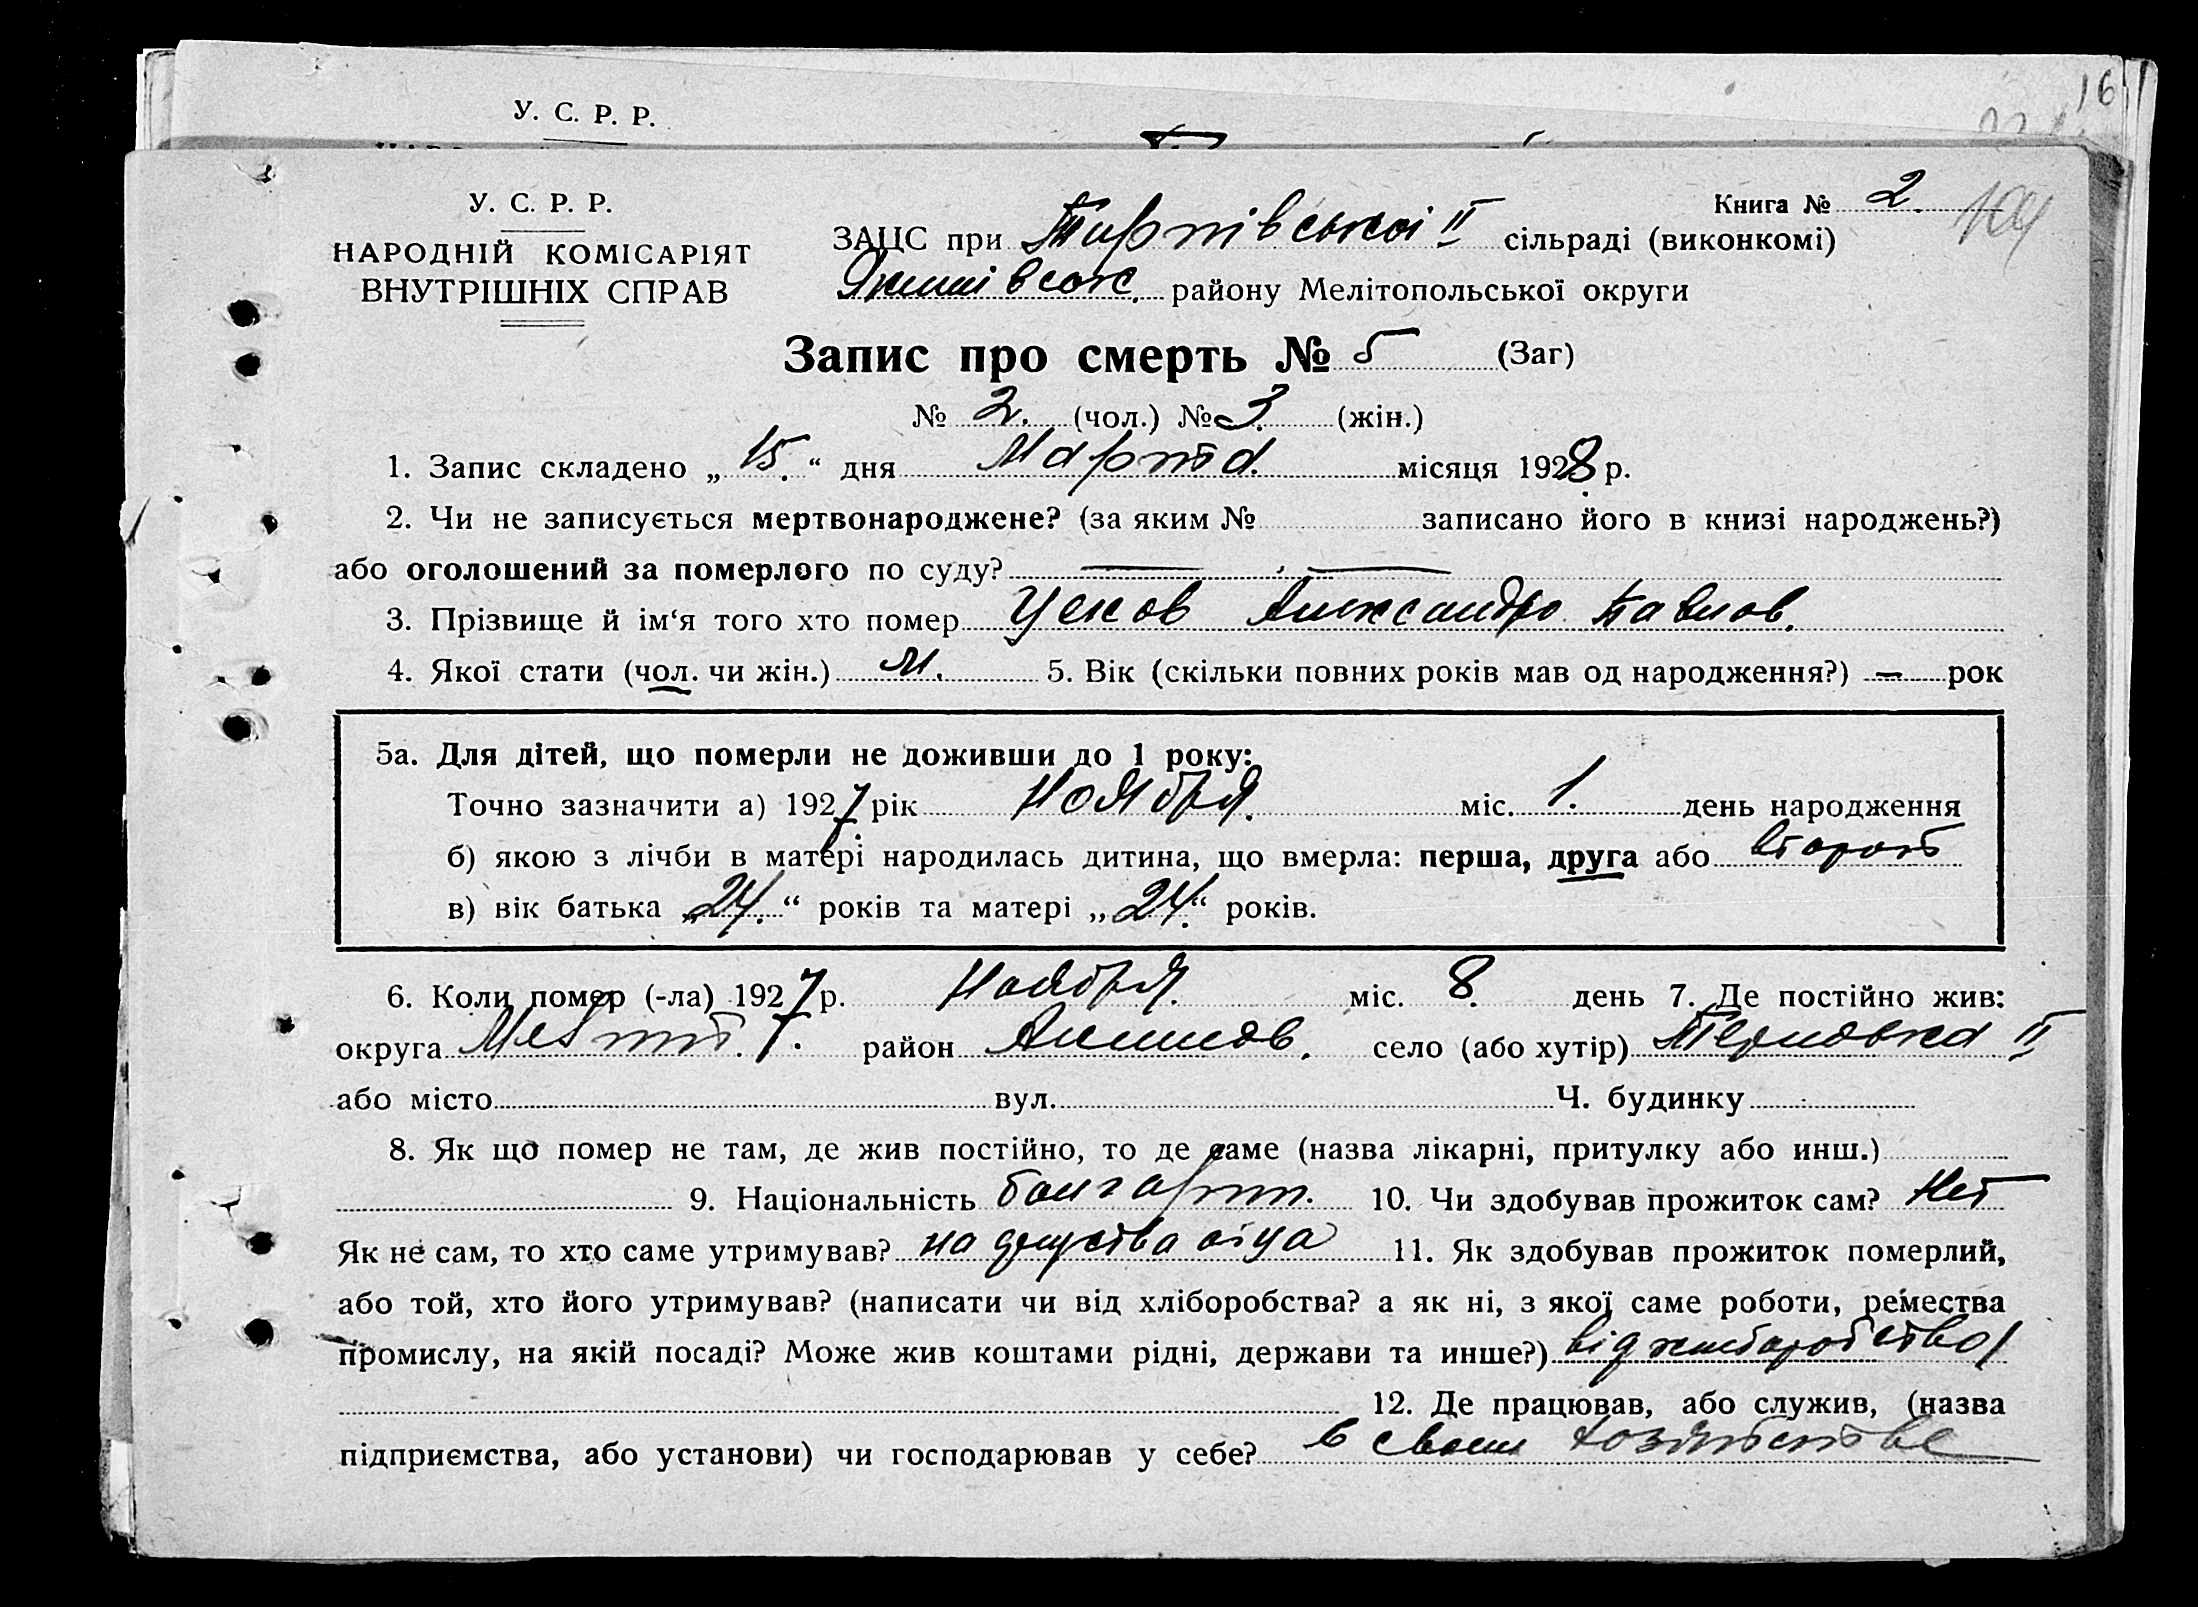 16
У. С. Р. Р.
У. С. Р. Р.
НАРОДНІЙ КОМІСАРІЯТ
ВНУТРІШНІХ СПРАВ
Книга № 2.
104
ЗАЦС при Тирнівської II сільраді (виконкомі)
Якимівськ. району Мелітопольської округи
Запис про смерть № 5 (Заг)
№ 2. (чол.) № 3. (жін.)
1. Запис складено „ 15. “ дня Марта. місяця 1928 р.
2. Чи не записується мертвонароджене? (за яким № записано його в книзі народжень?)
або оголошений за померлого по суду? — —
3. Прізвище й ім‘я того хто помер Александр Павлов.
4. Якої стати (чол. чи жін.) М. 5. Вік (скільки повних років мав од народження?) — рок
5а. Для дітей, що померли не доживши до 1 року:
Точно зазначити а) 1927 рік Ноября. міс. 1. день народження
б) якою з лічби в матері народилась дитина, що вмерла: перша, друга або второй
в) вік батька „24.“ років та матері „24.“ років.
6. Коли помер (-ла) 1927 р. Ноября. міс. 8. день 7. Де постійно жив:
округа район Акимов. село (або хутір) Терновка II
або місто вул. Ч. будинку
8. Як що помер не там, де жив постійно, то де саме (назва лікарні, притулку або инш.)
9. Національність болгарин. 10. Чи здобував прожиток сам? Нет
Як не сам, то хто саме утримував? на средства отца 11. Як здобував прожиток померлий,
або той, хто його утримував? (написати чи від хліборобства? а як ні, з якої саме роботи, ремества
промислу, на якій посаді? Може жив коштами рідні, держави та инше?) від хлеборобства
12. Де працював, або служив, (назва
підприємства, або установи) чи господарював у себе? в своем хозяйстве